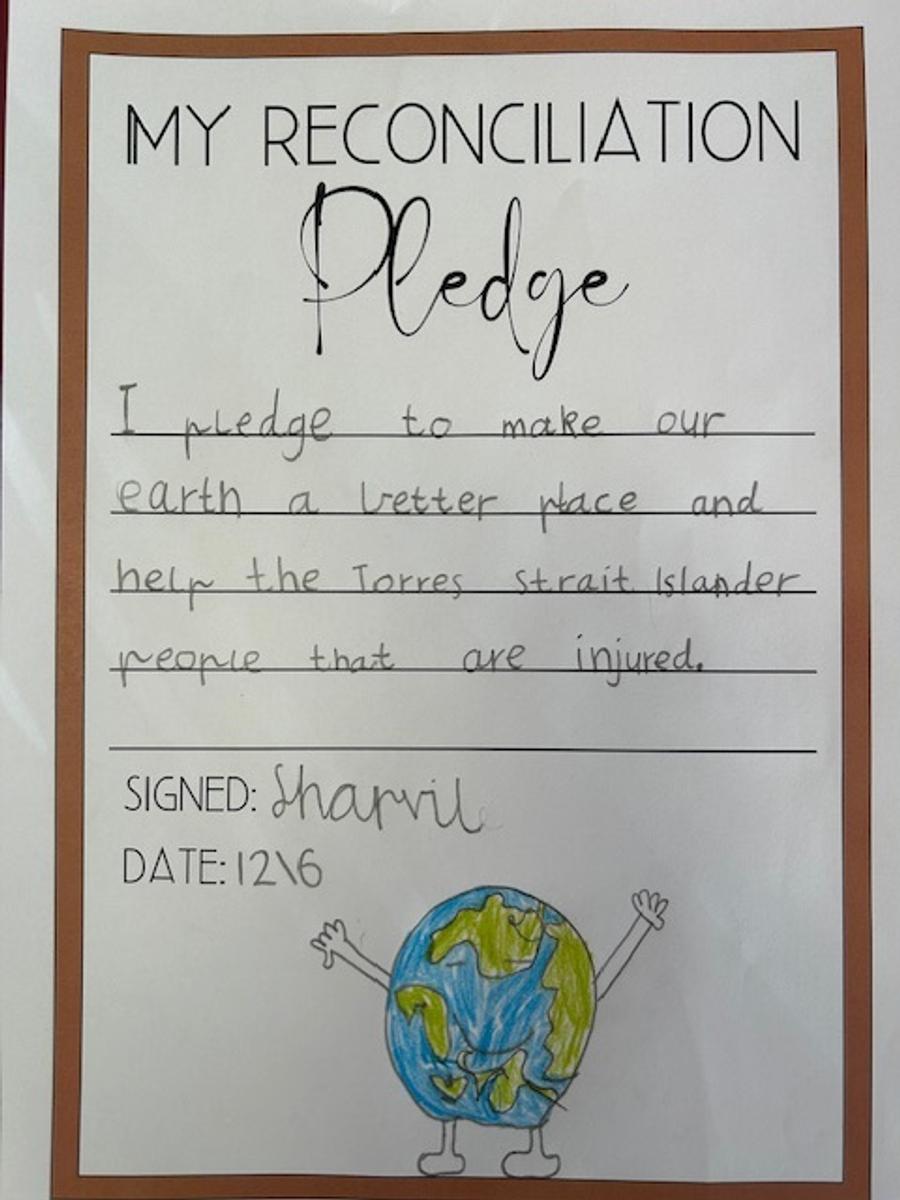 MY RECONCILIATION
Pledge
I pledge to make our
earth a better place and
help the Torres Strait Islander
people that are injured.
SIGNED: Sharvil
DATE: 12\6